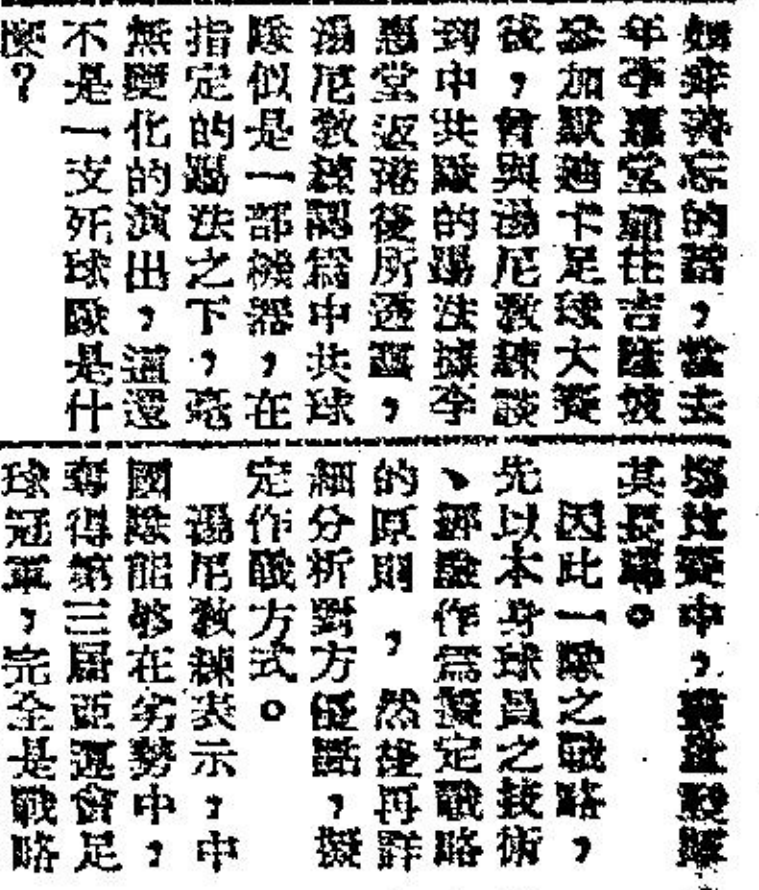 如弗善忘的話，當去
年李惠堂前往吉隆坡
參加默迪卡足球大賽
後，曾與湯尼教練談
到中共隊的踢法據李
惠堂返港後所透露，
湯尼教練認爲中共球
隊似是一部機器，在
指定的踢法之下，毫
無變化的演出，這還
不是一支死球隊是什
麽？
場比賽中，
其長處。
因此一隊之戰略，
先以本身球員之技術
、經驗作爲擬定戰略
的原則，然後再詳
細分析對方優點，擬
定作戰方式。
湯尼教練表示，中
國隊能够在劣勢中，
奪得第三屆亞運會足
球冠軍，完全是戰略